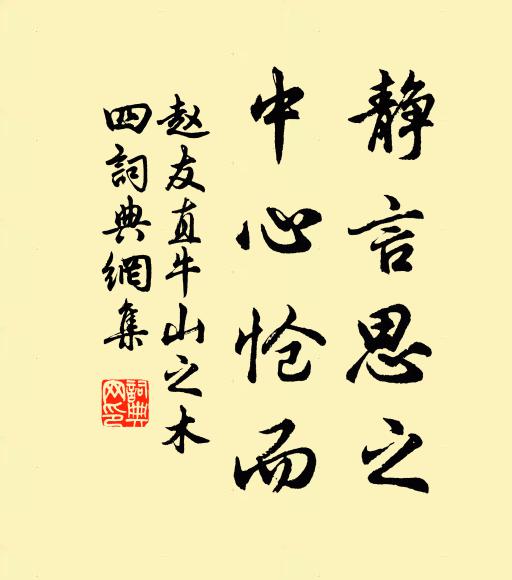 静言思之
中心怆而
赵友直牛山之木
四詞典網集
詞典
网印